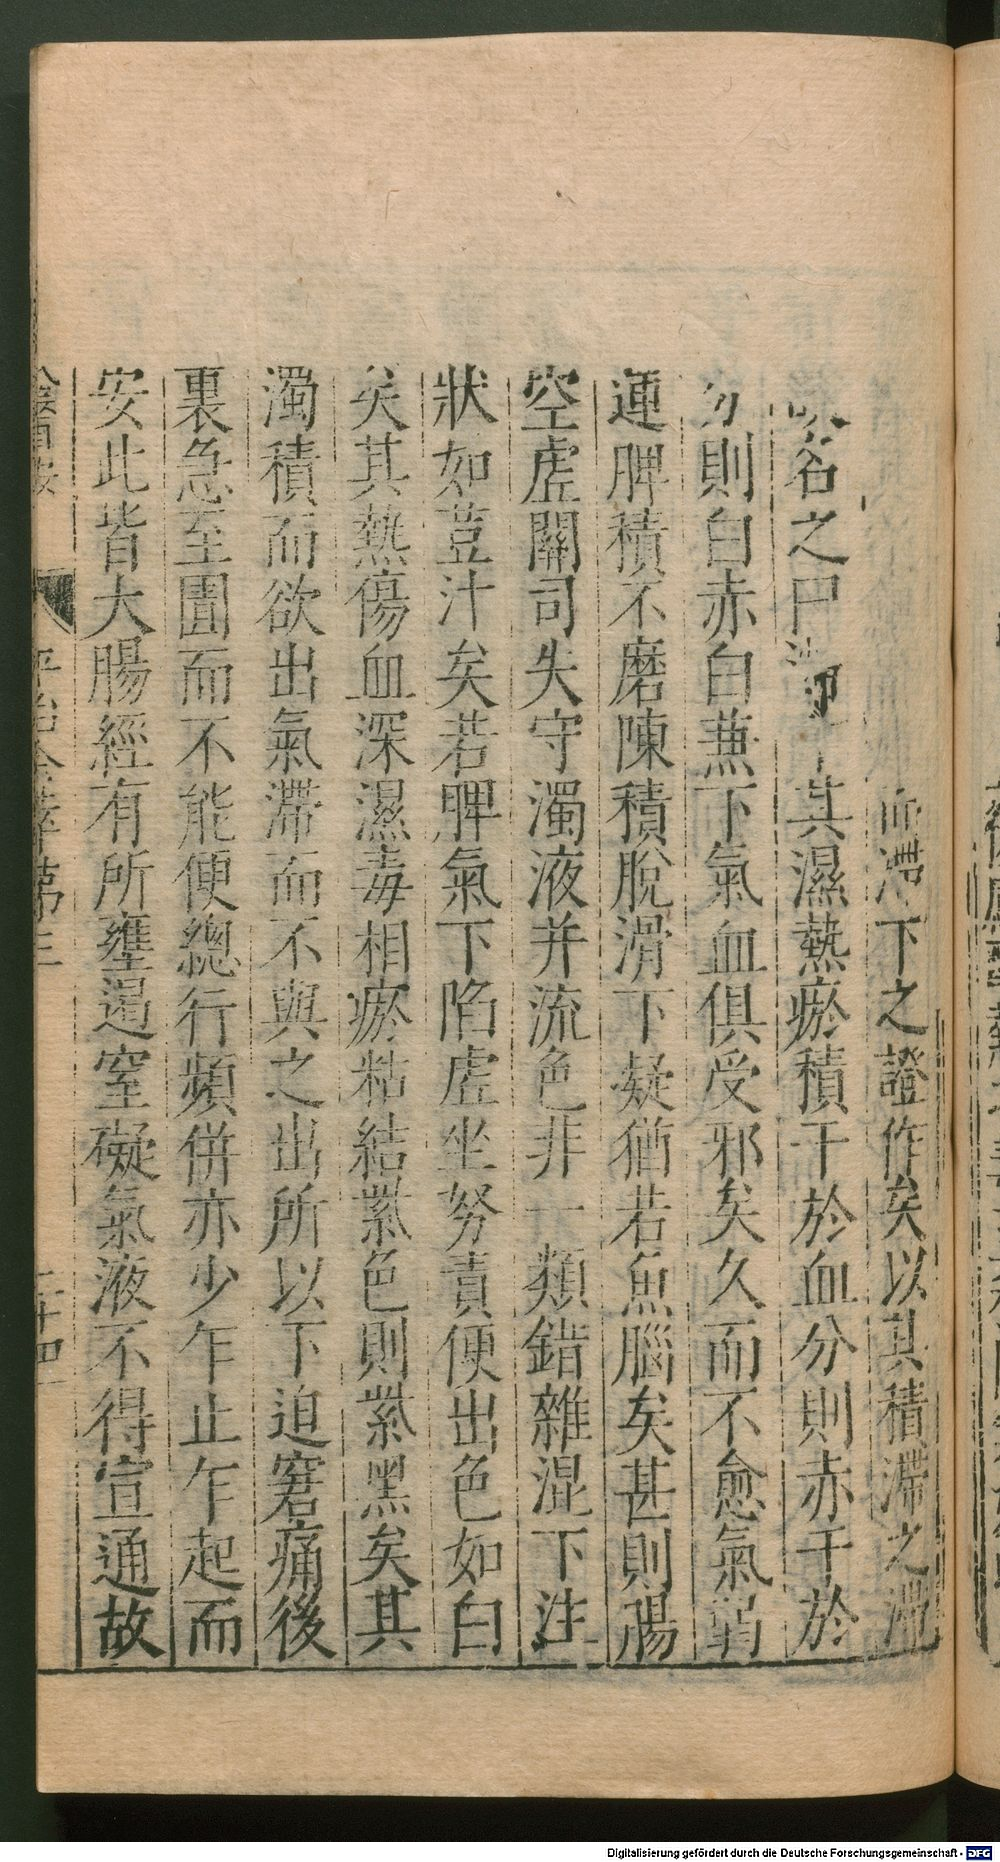 下之證作矣以其積滯之滯
名之曰其濕熱瘀積干於血分則赤干於
則白赤白兼下氣血俱受邪矣久而不愈氣弱
運脾積不磨陳積脫滑下凝猶若魚腦矣甚則腸
空虛關司失守濁液并流色非一類錯雜混下注
狀如荳汁矣若脾氣下陷虛坐努責便出色如白
矣其熱傷血深濕毒相瘀粘結紫色則紫黑矣其
濁積而欲出氣滯而不與之出所以下迫窘痛後
裏急至圊而不能便總行頻併亦少乍止乍起而
安此皆大腸經有所壅遏窒礙氣液不得宣通故
二十四
Digitalisierung gefördert durch die Deutsche Forschungsgemeinschaft - DFG